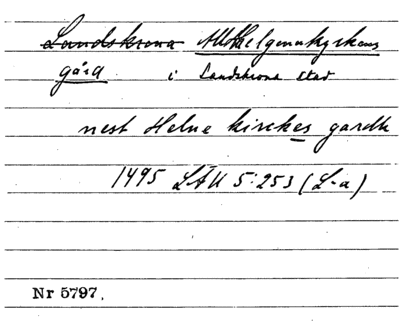 Landskrona Allhelgonakyrkans
gård i Landskrona stad
nest Helne kirckes gardh
1495 LÄU 5:253 (L-a)
Nr 5797.